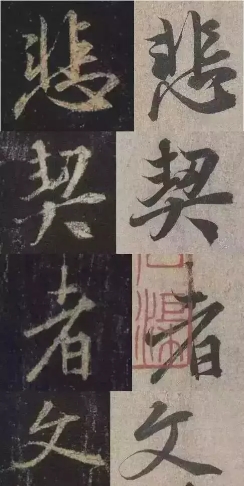 悲 悲
契 契
者 者
文 文